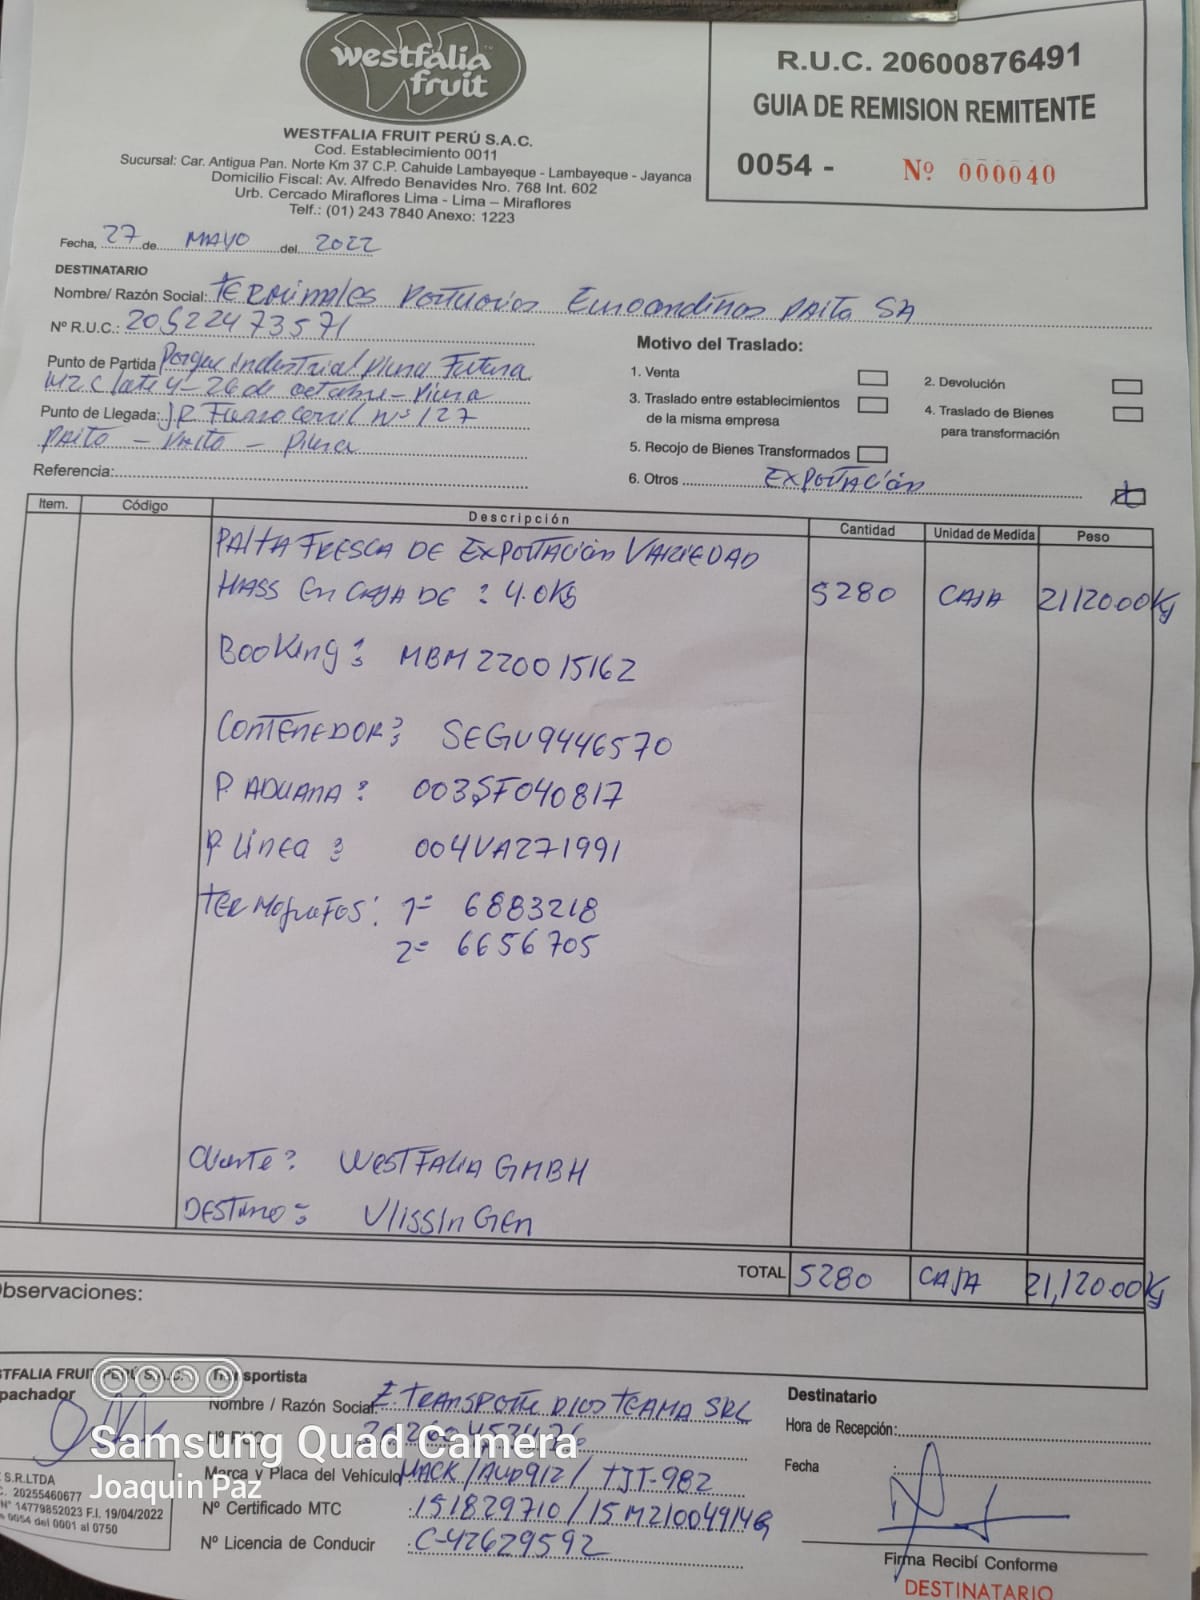 westfalia
fruit
WESTFALIA FRUIT PERÚ S.A.C.
Cod. Establecimiento 0011
Sucursal: Car. Antigua Pan. Norte Km 37 C.P. Cahuide Lambayeque - Lambayeque - Jayanca
Domicilio Fiscal: Av. Alfredo Benavides Nro. 768 Int. 602
Urb. Cercado Miraflores Lima - Lima – Miraflores
Telf.: (01) 243 7840 Anexo: 1223
R.U.C. 20600876491
GUIA DE REMISION REMITENTE
0054 - Nº 000040
Fecha, 27 de MAYO del 2022
DESTINATARIO
Nombre/ Razón Social: TERMINALES PORTUARIOS Euroandinos PAITA SA
Nº R.U.C.: 20522473571
Punto de Partida Parque Industrial Piura Futura
MZ C Lote 4 - 26 de octubre - Piura
Punto de Llegada: JR Ferrocarril Nº 127
PAITA - PAITA - Piura
Referencia:
Motivo del Traslado:
1. Venta
2. Devolución
3. Traslado entre establecimientos
de la misma empresa
4. Traslado de Bienes
para transformación
5. Recojo de Bienes Transformados
6. Otros EXPORTACIÓN
Item. Código Descripción Cantidad Unidad de Medida Peso
PALTA FRESCA DE EXPORTACIÓN VARIEDAD
HASS En CAJA DE : 4.0KG 5280 CAJA 21,120.00Kg
Booking: MBM220015162
CONTENEDOR: SEGU9446570
P. ADUANA: 003SF040817
P Linea: 004VA271991
TERMOGRAFOS: 1= 6883218
2= 6656705
Cliente: WESTFALIA GMBH
DESTINO: VlissinGen
TOTAL 5280 CAJA 21,120.00Kg
Observaciones:
STFALIA FRUIT PERÚ S.A.C.
pachador
Transportista
Nombre / Razón Social: E. TRANSPORTE DIOS TE AMA SRL
Nº RUC
Marca y Placa del Vehículo MACK / AUD912 / TJT-982
Nº Certificado MTC 151829710 / 15M21004914G
Nº Licencia de Conducir C-42629592
Destinatario
Hora de Recepción:
Fecha :
Firma Recibí Conforme
DESTINATARIO
S.R.LTDA
C. 20255460677
Nº 14779852023 F.I. 19/04/2022
0054 del 0001 al 0750
Samsung Quad Camera
Joaquin Paz